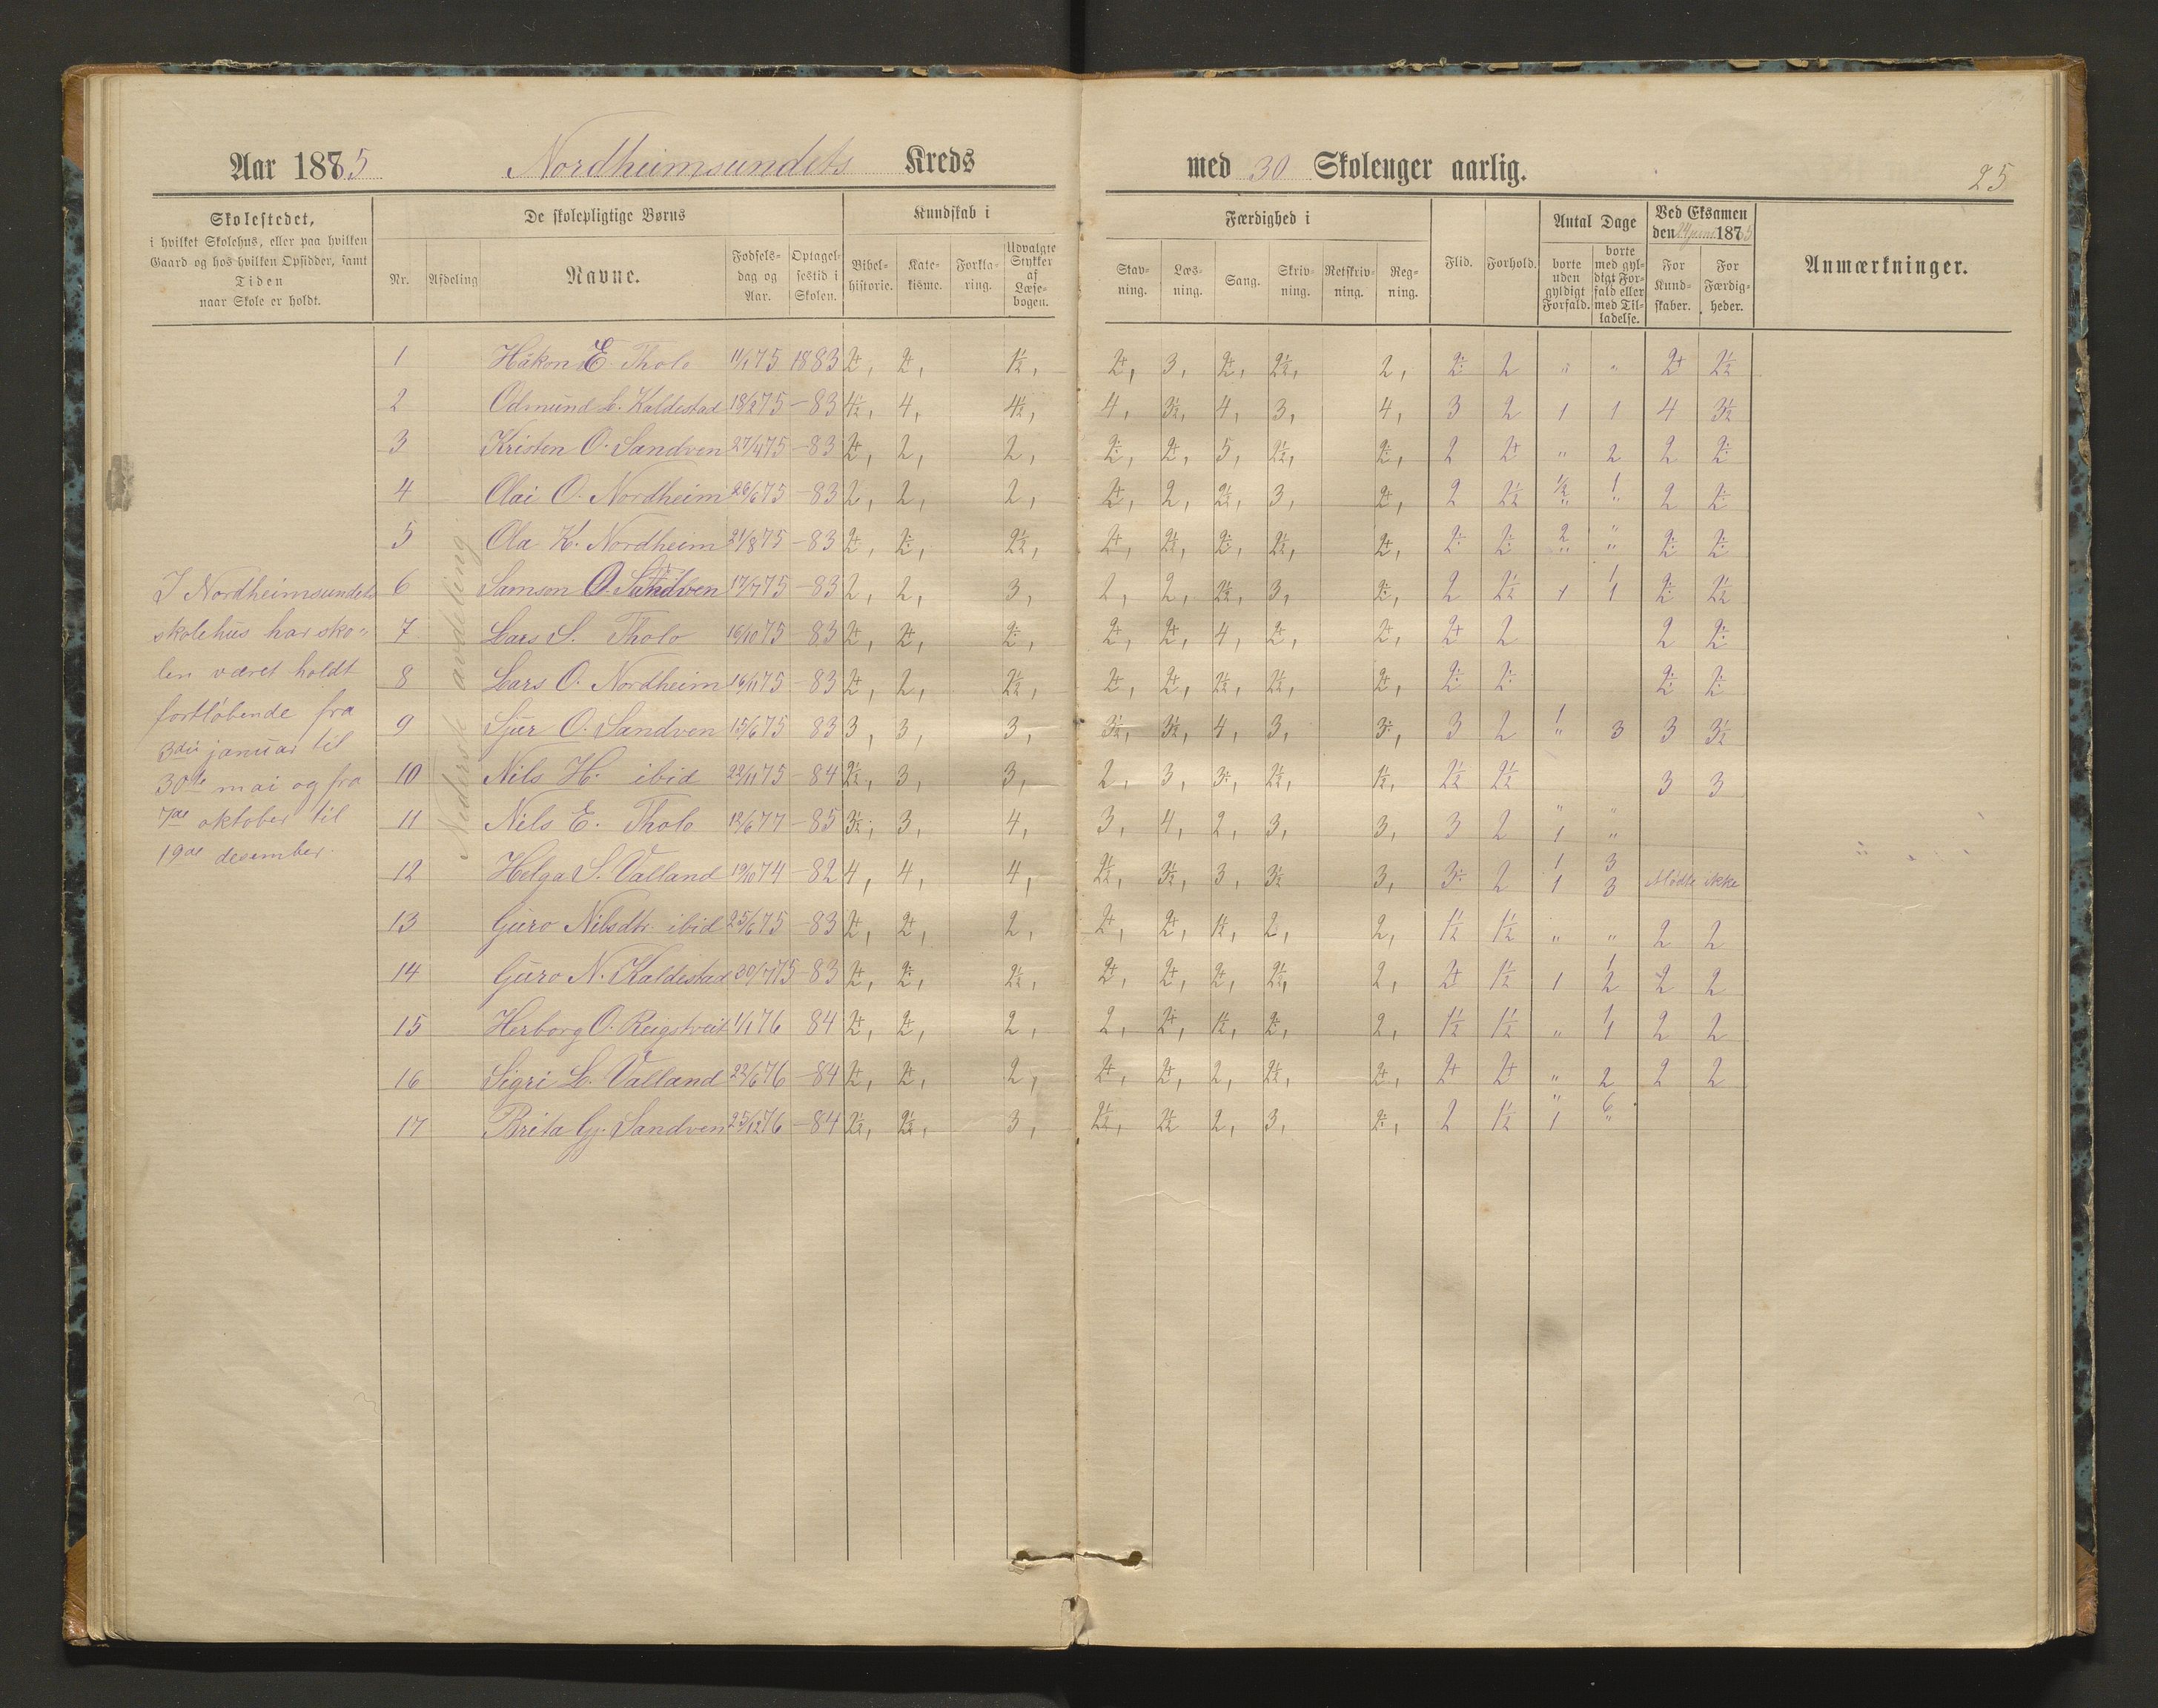 Aar 1885 Nordheimsundets Kreds med 30 Skoleuger aarlig. 25
Skolestedet, i hvilket Skolehus, eller paa hvilken Gaard og hos hvilken Opsidder, samt Tiden naar Skole er holdt.
De skolepligtige Børns
Nr. Afdeling Navne. Fødselsdag og Aar. Optagelsestid i Skolen.
Kundskab i
Bibelhistorie. Katekisme. Forklaring. Udvalgte Stykker af Læsebogen.
Færdighed i
Stavning. Læsning. Sang. Skrivning. Retskrivning. Regning.
Flid. Forhold.
Antal Dage
borte uden gyldigt Forfald. borte med gyldigt Forfald eller med Tilladelse.
Ved Eksamen den 24 juni 1885
For Kundskaber. For Færdigheder.
Anmærkninger.
I Nordheimsundets
skolehus har sko=
len været holdt
fortløbende fra
3die januar til
30te mai og fra
7de oktober til
19de desember.
Nederste avdeling
1 Håkon E. Tholo 11/1 75 1883 2+, 2+, 1½, 2+, 3, 2+, 2½, 2, 2÷ 2 " " 2+ 2½
2 Odmund L. Kaldestad 18/2 75 -83 4½, 4, 4½, 4, 3½, 4, 3, 4, 3 2 1 1 4 3½
3 Kristen O. Sandven 27/4 75 -83 2+, 2, 2, 2÷, 2+, 5, 2½, 2÷, 2 2+ " 2 2 2÷
4 Olai O. Nordheim 26/6 75 -83 2, 2, 2, 2+, 2, 2½, 3, 2+, 2 2½ ½ " 1 " 2 2÷
5 Ola K. Nordheim 21/8 75 -83 2+, 2÷, 2½, 2+, 2½, 2÷, 2½, 2+, 2÷ 2÷ 2 " " " 2÷ 2÷
6 Samson O. Sandven 17/7 75 -83 2, 2, 3, 2, 2, 2½, 3, 2÷, 2 2½ 1 1 1 2÷ 2½
7 Lars S. Tholo 16/10 75 -83 2+, 2+, 2÷, 2+, 2+, 4, 2+, 2+, 2+ 2 2 2÷
8 Lars O. Nordheim 16/11 75 -83 2+, 2, 2½, 2+, 2+, 2½, 2½, 2+, 2÷ 2÷ 2÷ 2÷
9 Sjur O. Sandven 15/6 75 83 3, 3, 3, 3½, 3½, 4, 3, 3÷, 3 2 1 " 3 3 3½
10 Nils H. ibid 22/11 75 -84 2½, 3, 3, 2, 3, 3÷, 2½, 1½, 2½ 2½ 3 3
11 Nils E. Tholo 19/6 77 -85 3½, 3, 4, 3, 4, 2, 3, 3, 3 2 " 1 " "
12 Helga S. Valland 19/10 74 -82 4, 4, 4, 2½, 3½, 3, 3½ 3, 3÷ 2 1 1 3 3 Mødte ikke
13 Guro Nilsdtr. ibid 25/6 75 -83 2+, 2+, 2, 2+, 2+, 1½, 2, 2, 1½ 1½ " " 2 2
14 Guro N. Kaldestad 30/7 75 -83 2+, 2÷, 2½, 2+, 2+, 2+, 2½, 2, 2+ 1½ 1 1 2 2 2
15 Herborg O. Reigstveit 1/1 76 84 2+, 2+, 2, 2, 2+, 1½, 2÷, 2, 1½ 1½ " 1 1 2 2
16 Sigri L. Valland 22/6 76 -84 2+, 2+, 2, 2+, 2+, 2, 2½, 2+, 2+ 2+ " 2 2 2
17 Brita Gj. Sandven 25/12 76 -84 2½, 2½, 3, 2½, 2½ 2, 3, 2÷, 2 1½ " 1 6 "